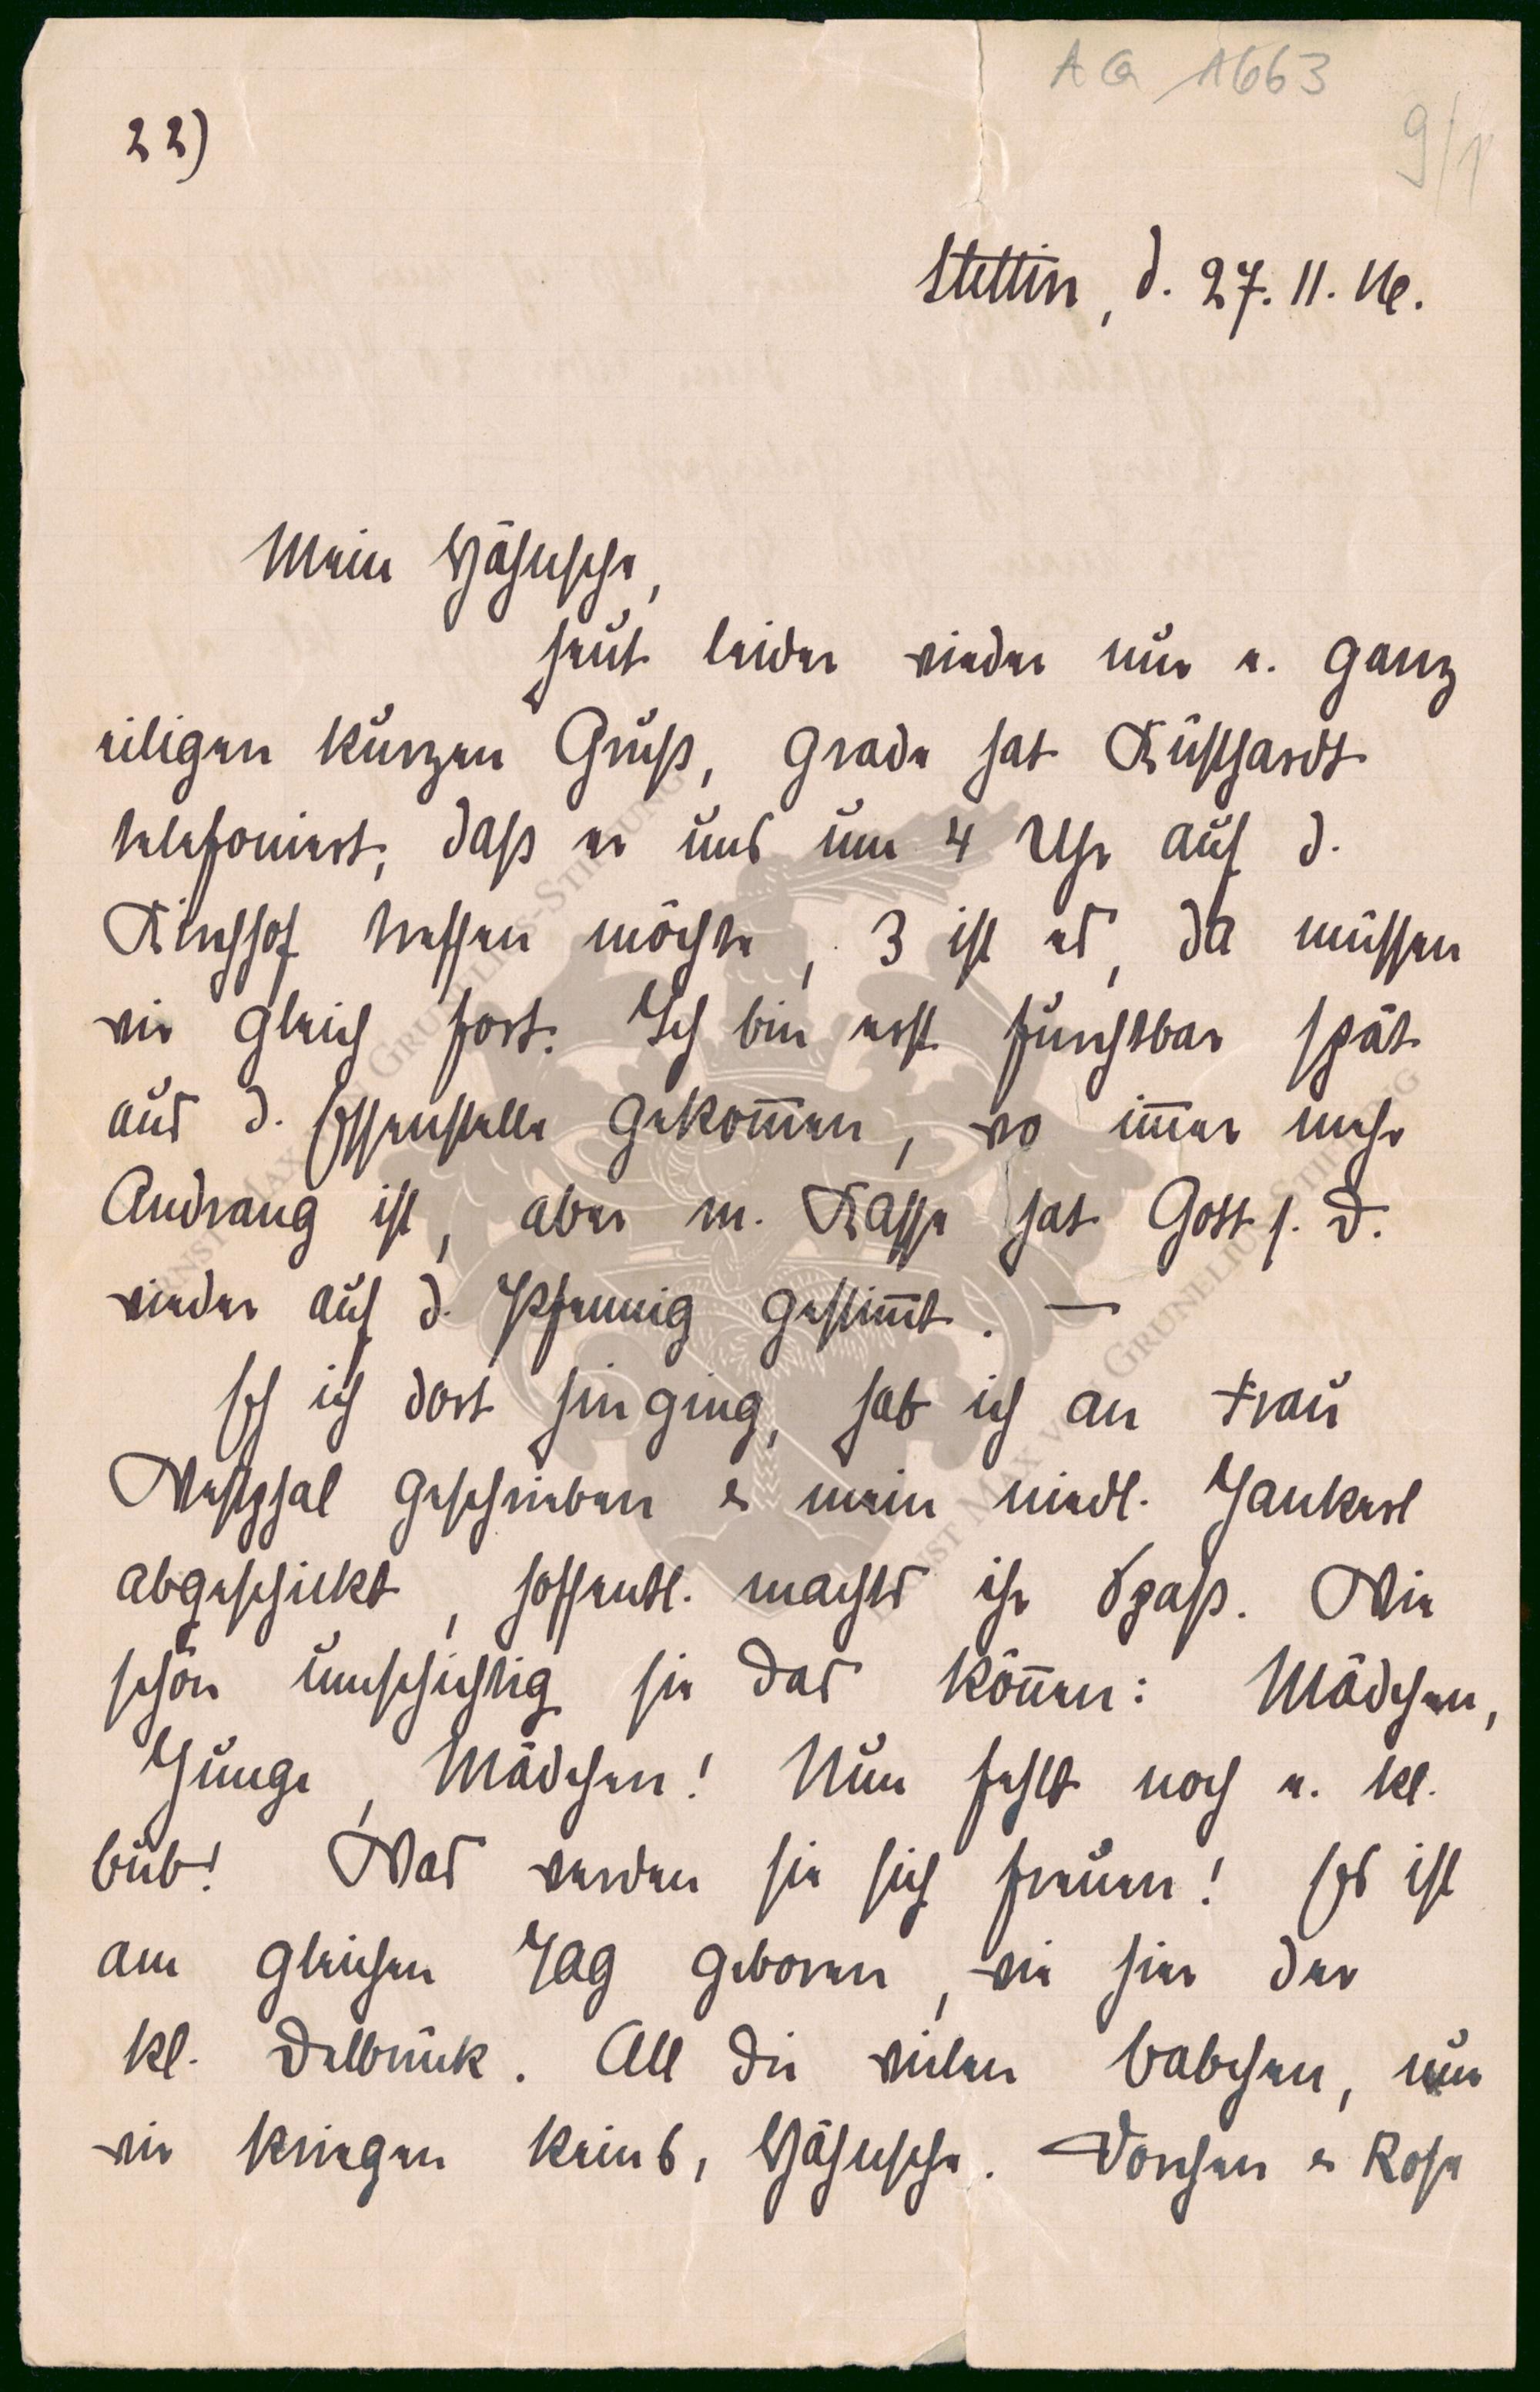 AG 1663
9/1
22)
Stettin, d. 27. 11. 16.
Mein Hähnsche,
heut leider wieder nur e. ganz
eiligen kurzen Gruß, grade hat Küsthardt
telefoniert, daß er uns um 4 Uhr auf d.
Kirchhof treffen möchte, 3 ist es, da müssen
wir gleich fort. Ich bin erst furchtbar spät
aus d. Essenstelle gekom̅en, wo im̅er mehr
Andrang ist, aber m. Kasse hat Gott s. D.
wieder auf d. Pfennig gestim̅t. —
Eh ich dort hin ging, hab ich an Frau
Westphal geschrieben & mein niedl. Jankerl
abgeschickt, hoffentl. machts ihr Spaß. Wie
schön umschichtig sie das kön̅en: Mädchen,
Junge, Mädchen! Nun fehlt noch e. kl.
bub! Was werden sie sich freuen! Es ist
am gleichen Tag geboren, wie hier der
kl. Delbrück. All die vielen babchen, nur
wir kriegen keins, Hähnsche. Dorchen & Rose
ERNST MAX VON GRUNELIUS-STIFTUNG
ERNST MAX VON GRUNELIUS-STIFTUNG